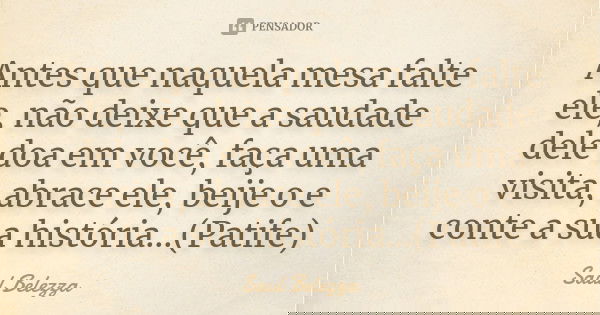 PENSADOR
Antes que naquela mesa falte
ele, não deixe que a saudade
dele doa em você, faça uma
visita, abrace ele, beije o e
conte a sua história...(Patife)
Saul Belezza